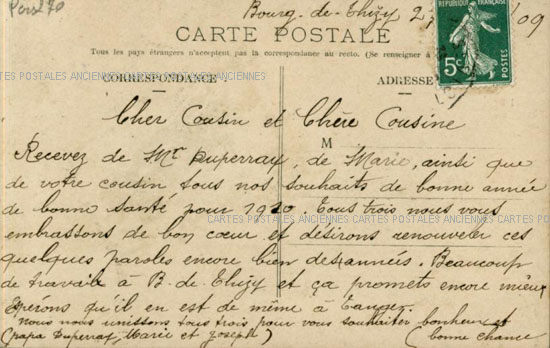 Bourg-de-Thizy 2 /09
CARTE POSTALE
Tous les pays étrangers n'acceptent pas la correspondance au recto. (Se renseigner à
5c
CARTES POSTALES ANCIENNES CARTES POSTALES ANCIENNES
CORRESPONDANCE ADRESSE
Cher Cousin et Chère Cousine
M
Recevez de Mr Duperray, de Marie, ainsi que
de votre cousin tous nos souhaits de bonne année
de bonne santé pour 1910. Tous trois nous vous
CARTES POSTALES ANCIENNES CARTES POSTALES ANCIENNES
embrassons de bon cœur et désirons renouveler ces
quelques paroles encore bien des années. Beaucoup
de travail à B. de Thizy et ça promets encore mieux
Espérons qu'il en est de même à Tanger.
Nous nous unissons tous trois pour vous souhaiter bonheur et
(papa Duperray, Marie et Joseph) bonne chance